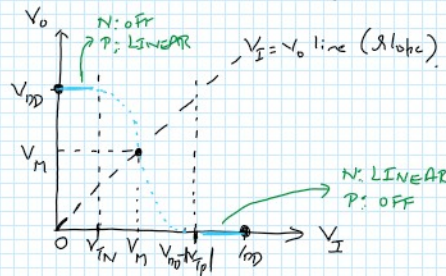 V₀
N: OFF
P: LINEAR
V_I = V₀ line (Slope)
V_DD
V_M
N: LINEAR
P: OFF
O V_TN V_M V_DD-|V_Tp| V_DD V_I